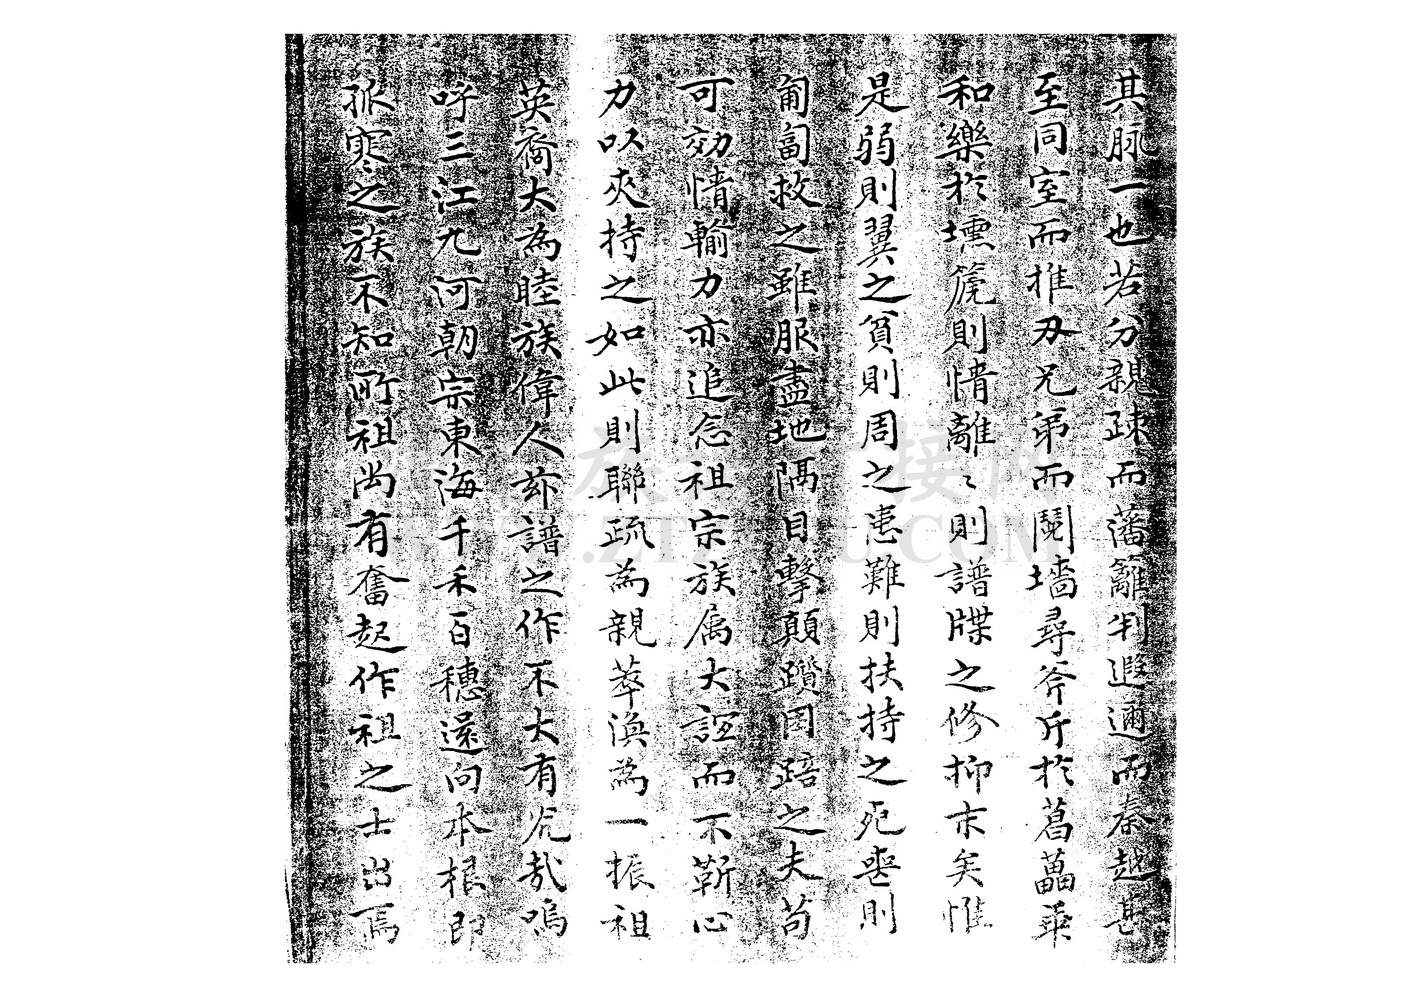 其脉一也若分親疎而藩籬判遐邇而秦越甚
至同室而推刃兄弟而鬩墻尋斧斤於葛藟乖
和樂於壎箎則情離〻則譜牒之修抑末矣惟
是弱則翼之貧則周之患難則扶持之死喪則
匍匐救之雖服盡地隅目擊顛躓困踣之夫苟
可効情輸力亦追念祖宗族属大誼而不靳心
力以夾持之如此則聯疏為親萃渙為一振祖
英裔大為睦族偉人茲譜之作不大有光哉嗚
呼三江九河朝宗東海千禾百穗還向本根即
孤寒之族不知所祖尚有奮起作祖之士出焉